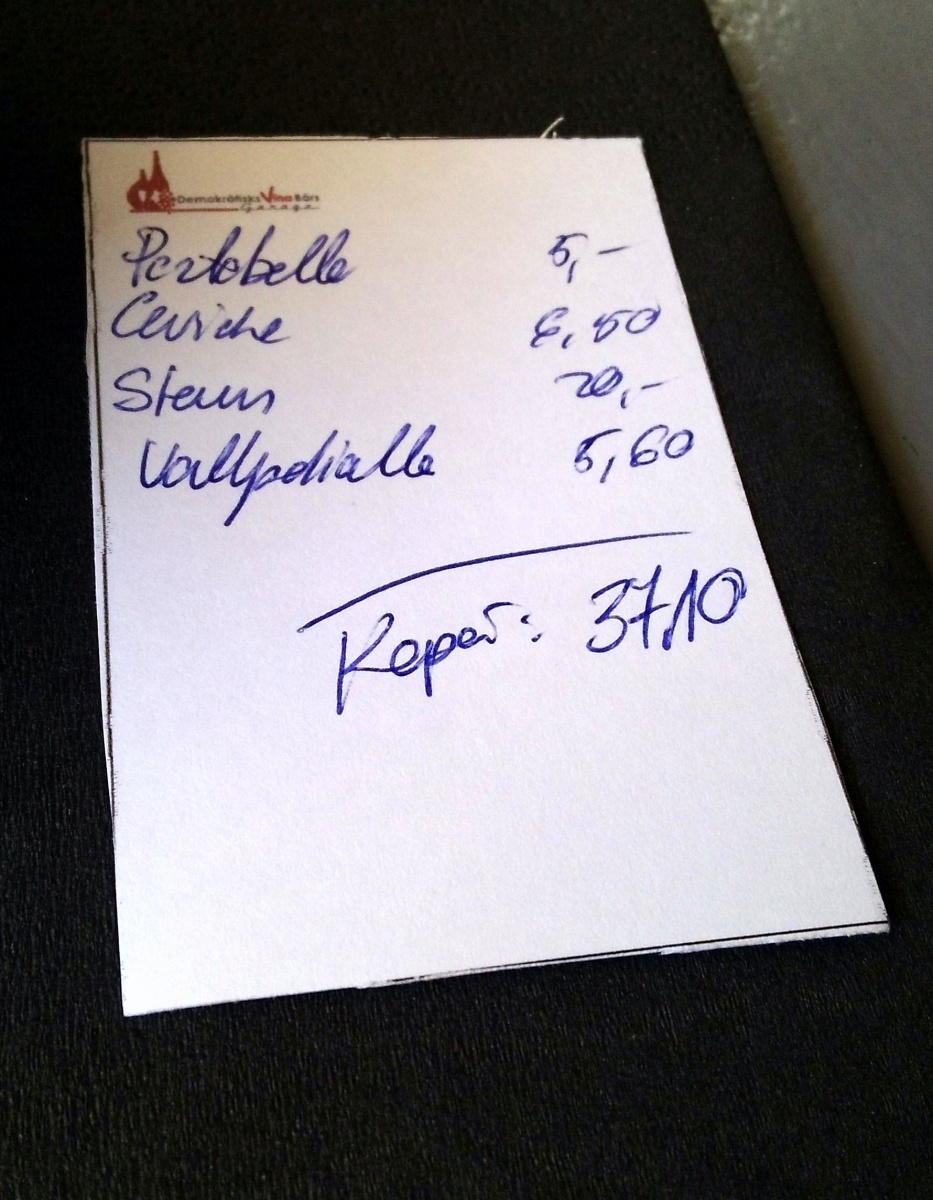 Demokrātisks Vīna Bārs
Garage
Portobello 5,-
Ceviche 6,50
20,-
5,60
Kopā: 37,10